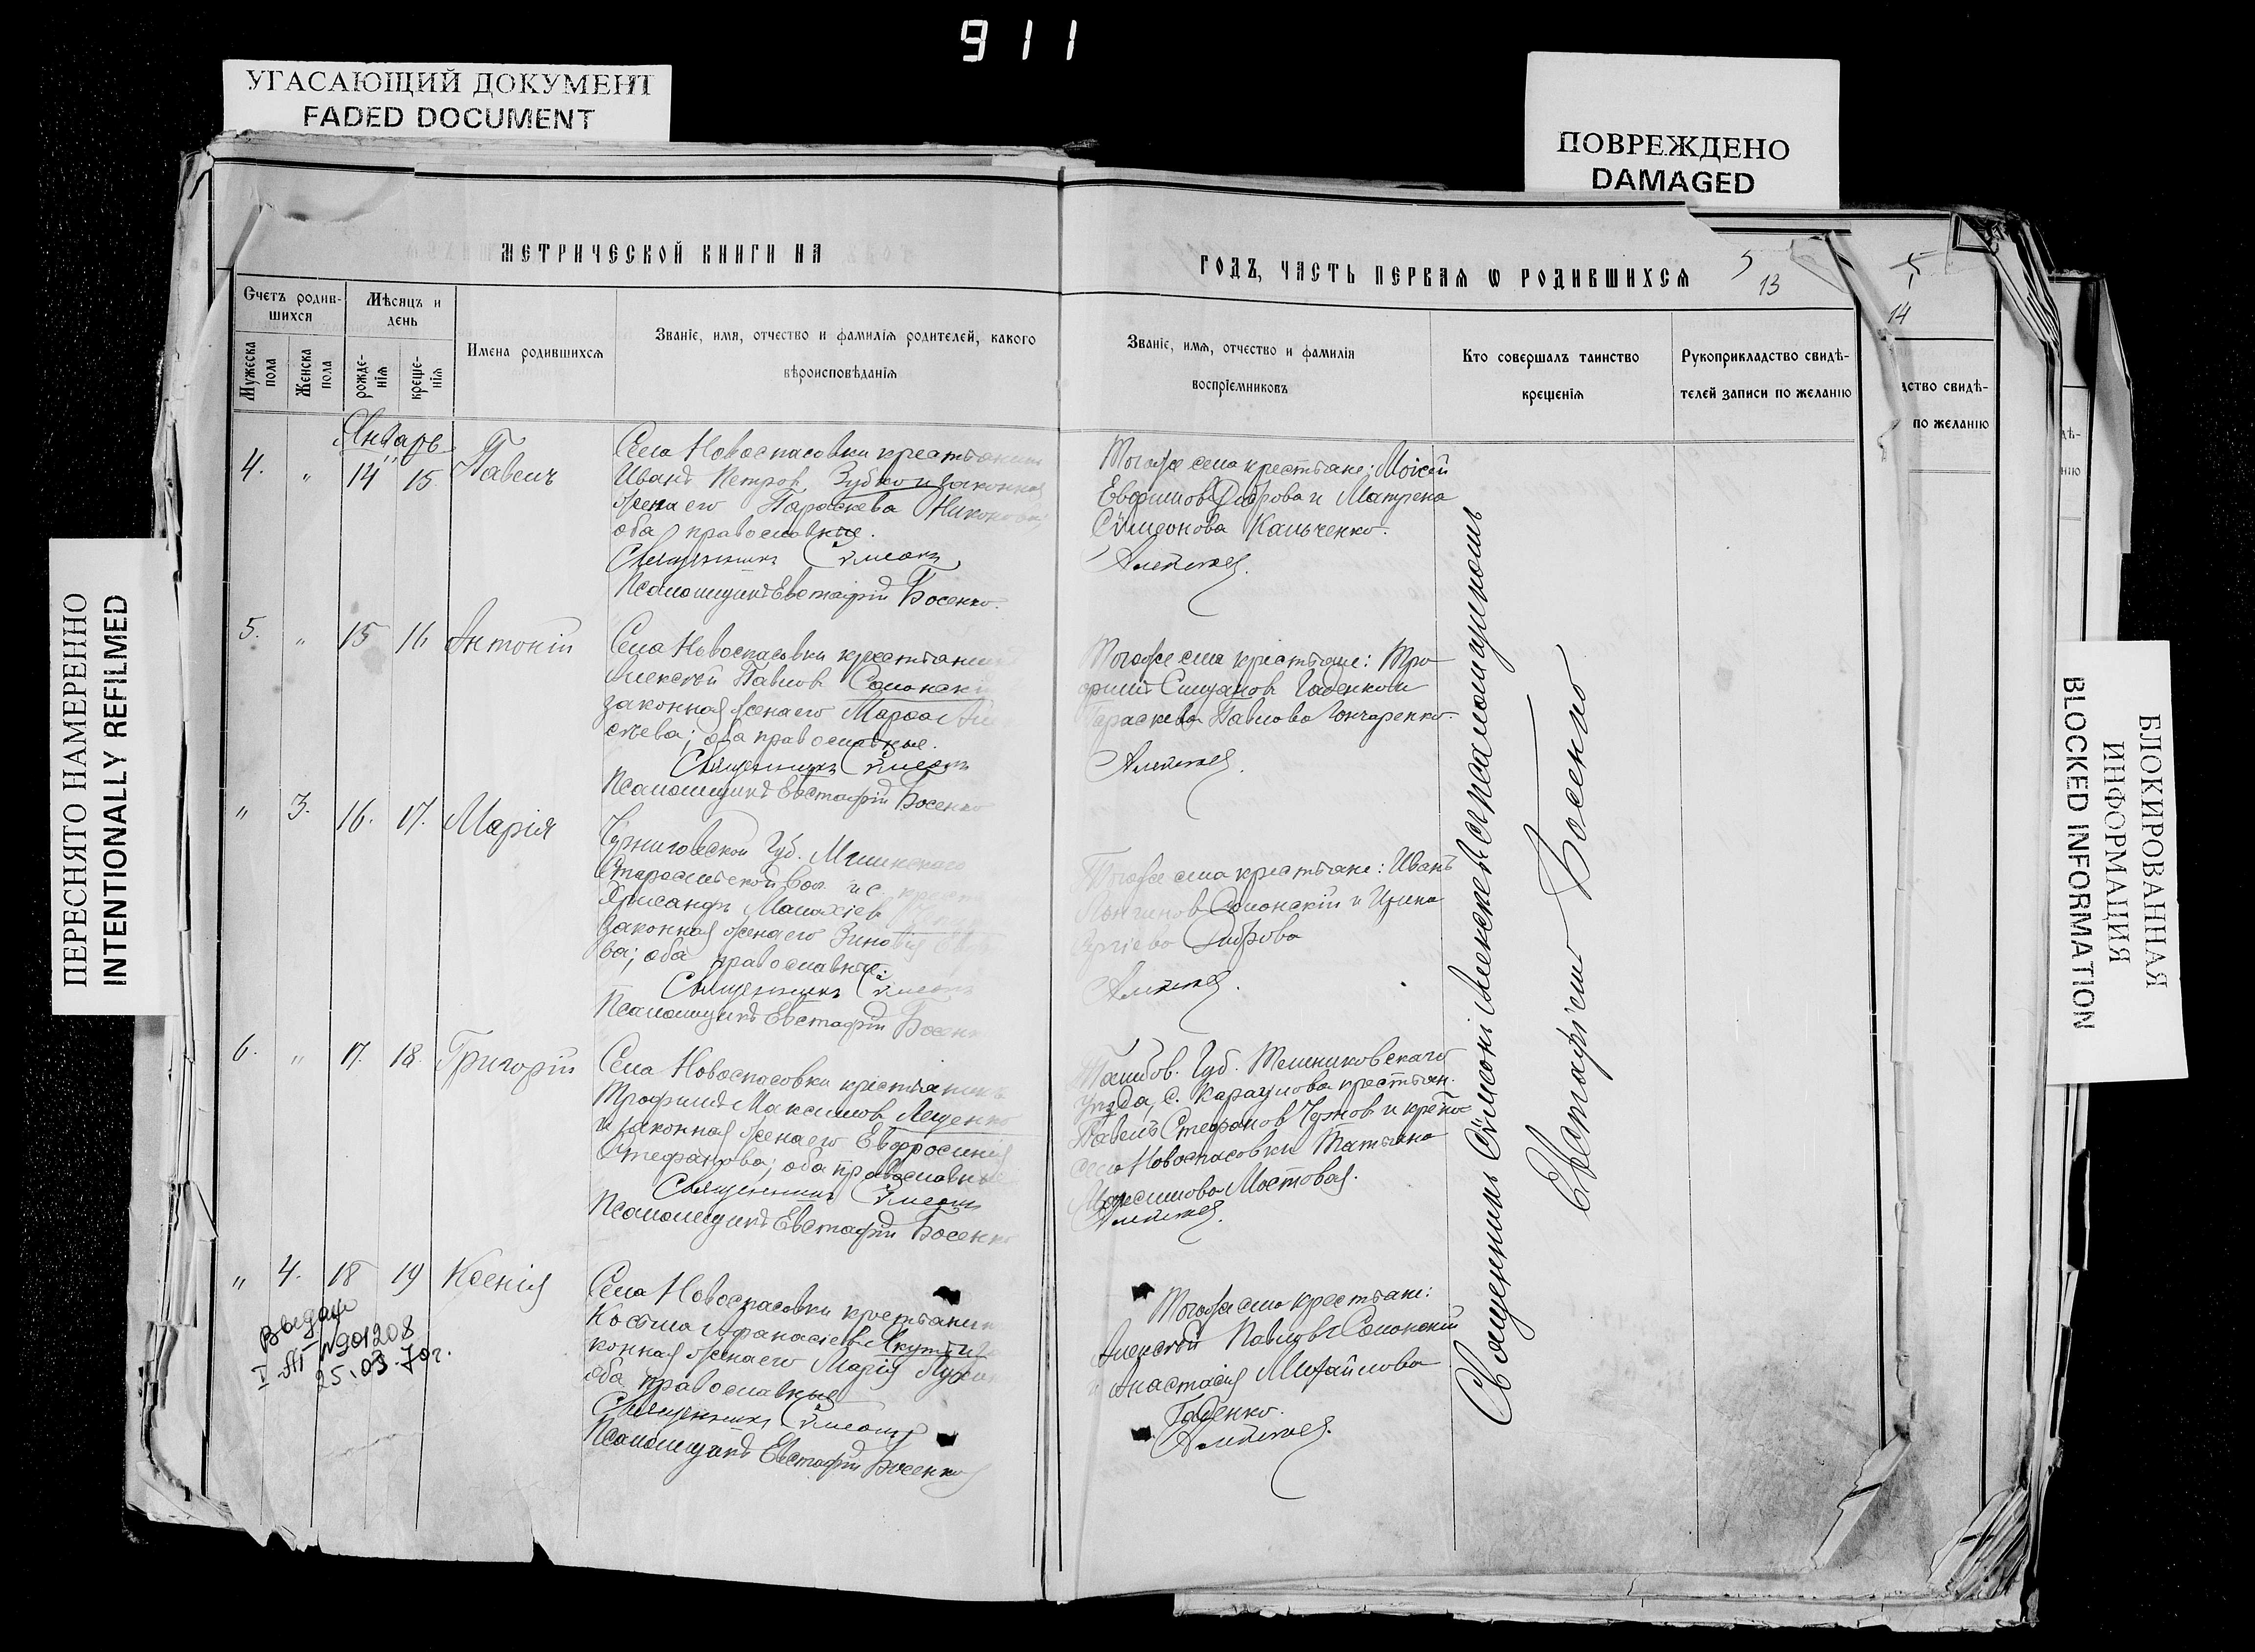 911
УГАСАЮЩИЙ ДОКУМЕНТ
FADED DOCUMENT
ПОВРЕЖДЕНО
DAMAGED
ПЕРЕСНЯТО НАМЕРЕННО
INTENTIONALLY REFILMED
БЛОКИРОВАННАЯ
ИНФОРМАЦИЯ
BLOCKED INFORMATION
МЕТРИЧЕСКОЙ КНИГИ НА
ГОДЪ, ЧАСТЬ ПЕРВАЯ Ѡ РОДИВШИХСЯ
5
13
14
Счетъ родив-
шихся
Мѣсяцъ и
день
Мужеска
пола
Женска
пола
рожде-
нія
креще-
нія
Имена родившихся
Званіе, имя, отчество и фамилія родителей, какого
вѣроисповѣданія
Званіе, имя, отчество и фамилія
воспріемниковъ
Кто совершалъ таинство
крещенія
Рукоприкладство свидѣ-
телей записи по желанію
дство свидѣ-
по желанію
Январь
4. " 14 15. Павелъ
Села Новоспасовки крестьянинъ
Иванъ Петровъ Зубко и законная
жена его Параскева Никонова
оба православные.
Священникъ Сѵмеонъ
Псаломщикъ Евстафій Босенко.
Тогоже села крестьяне: Моісей
Евфимовъ Диброва и Матрена
Сѵмеонова Кальченко.
5. " 15 16 Антоній
Села Новоспасовки крестьянинъ
Алексѣй Павловъ Солонскі
законная жена его Марѳа
сѣева; оба православные.
Священникъ Сѵмеонъ
Псаломщикъ Евстафій Босенко
Тогоже села крестьяне: Тро
фимъ Гаденко и
Параскева Павлова Гончаренко.
" 3. 16. 17. Марія
Черниговской Губ. Мглинскаго
вол. и с. крест
Хрисанфъ Малахіевъ
законная жена его Зиновія
ва; оба православные.
Священникъ Сѵмеонъ
Псаломщикъ Евстафій Босенк
Тогоже села крестьяне: Иванъ
Лонгиновъ Солонскій и Ирина
Сергіева Диброва
6. " 17. 18. Григорій
Села Новоспасовки крестьянинъ
Трофимъ Максимовъ Леценко
и законная жена его Евфросинія
Стефанова; оба православные
Священникъ Сѵмеонъ
Псаломщикъ Евстафій Босенко
Тамбов. Губ.
уѣзда, с. Караулова крестьян.
Павелъ Стефановъ и крест
села Новоспасовки Татьяна
Максимова Мостовая.
" 4. 18 19 Ксенія
Села Новоспасовки крестьянинъ
Косьма Афанасіевъ Якутъ и за
конная жена его Марія
оба православные
Священникъ Сѵмеонъ
Псаломщикъ Евстафій Босенко
Тогоже села крестьяне:
Алексѣй Павловъ Солонскій
и Анастасія Михайлова
Гаденко.
Выдано
№901208
25.03.70г.
Священникъ Сѵмеонъ Алексѣевъ съ псаломщикомъ
Евстафіемъ Босенко